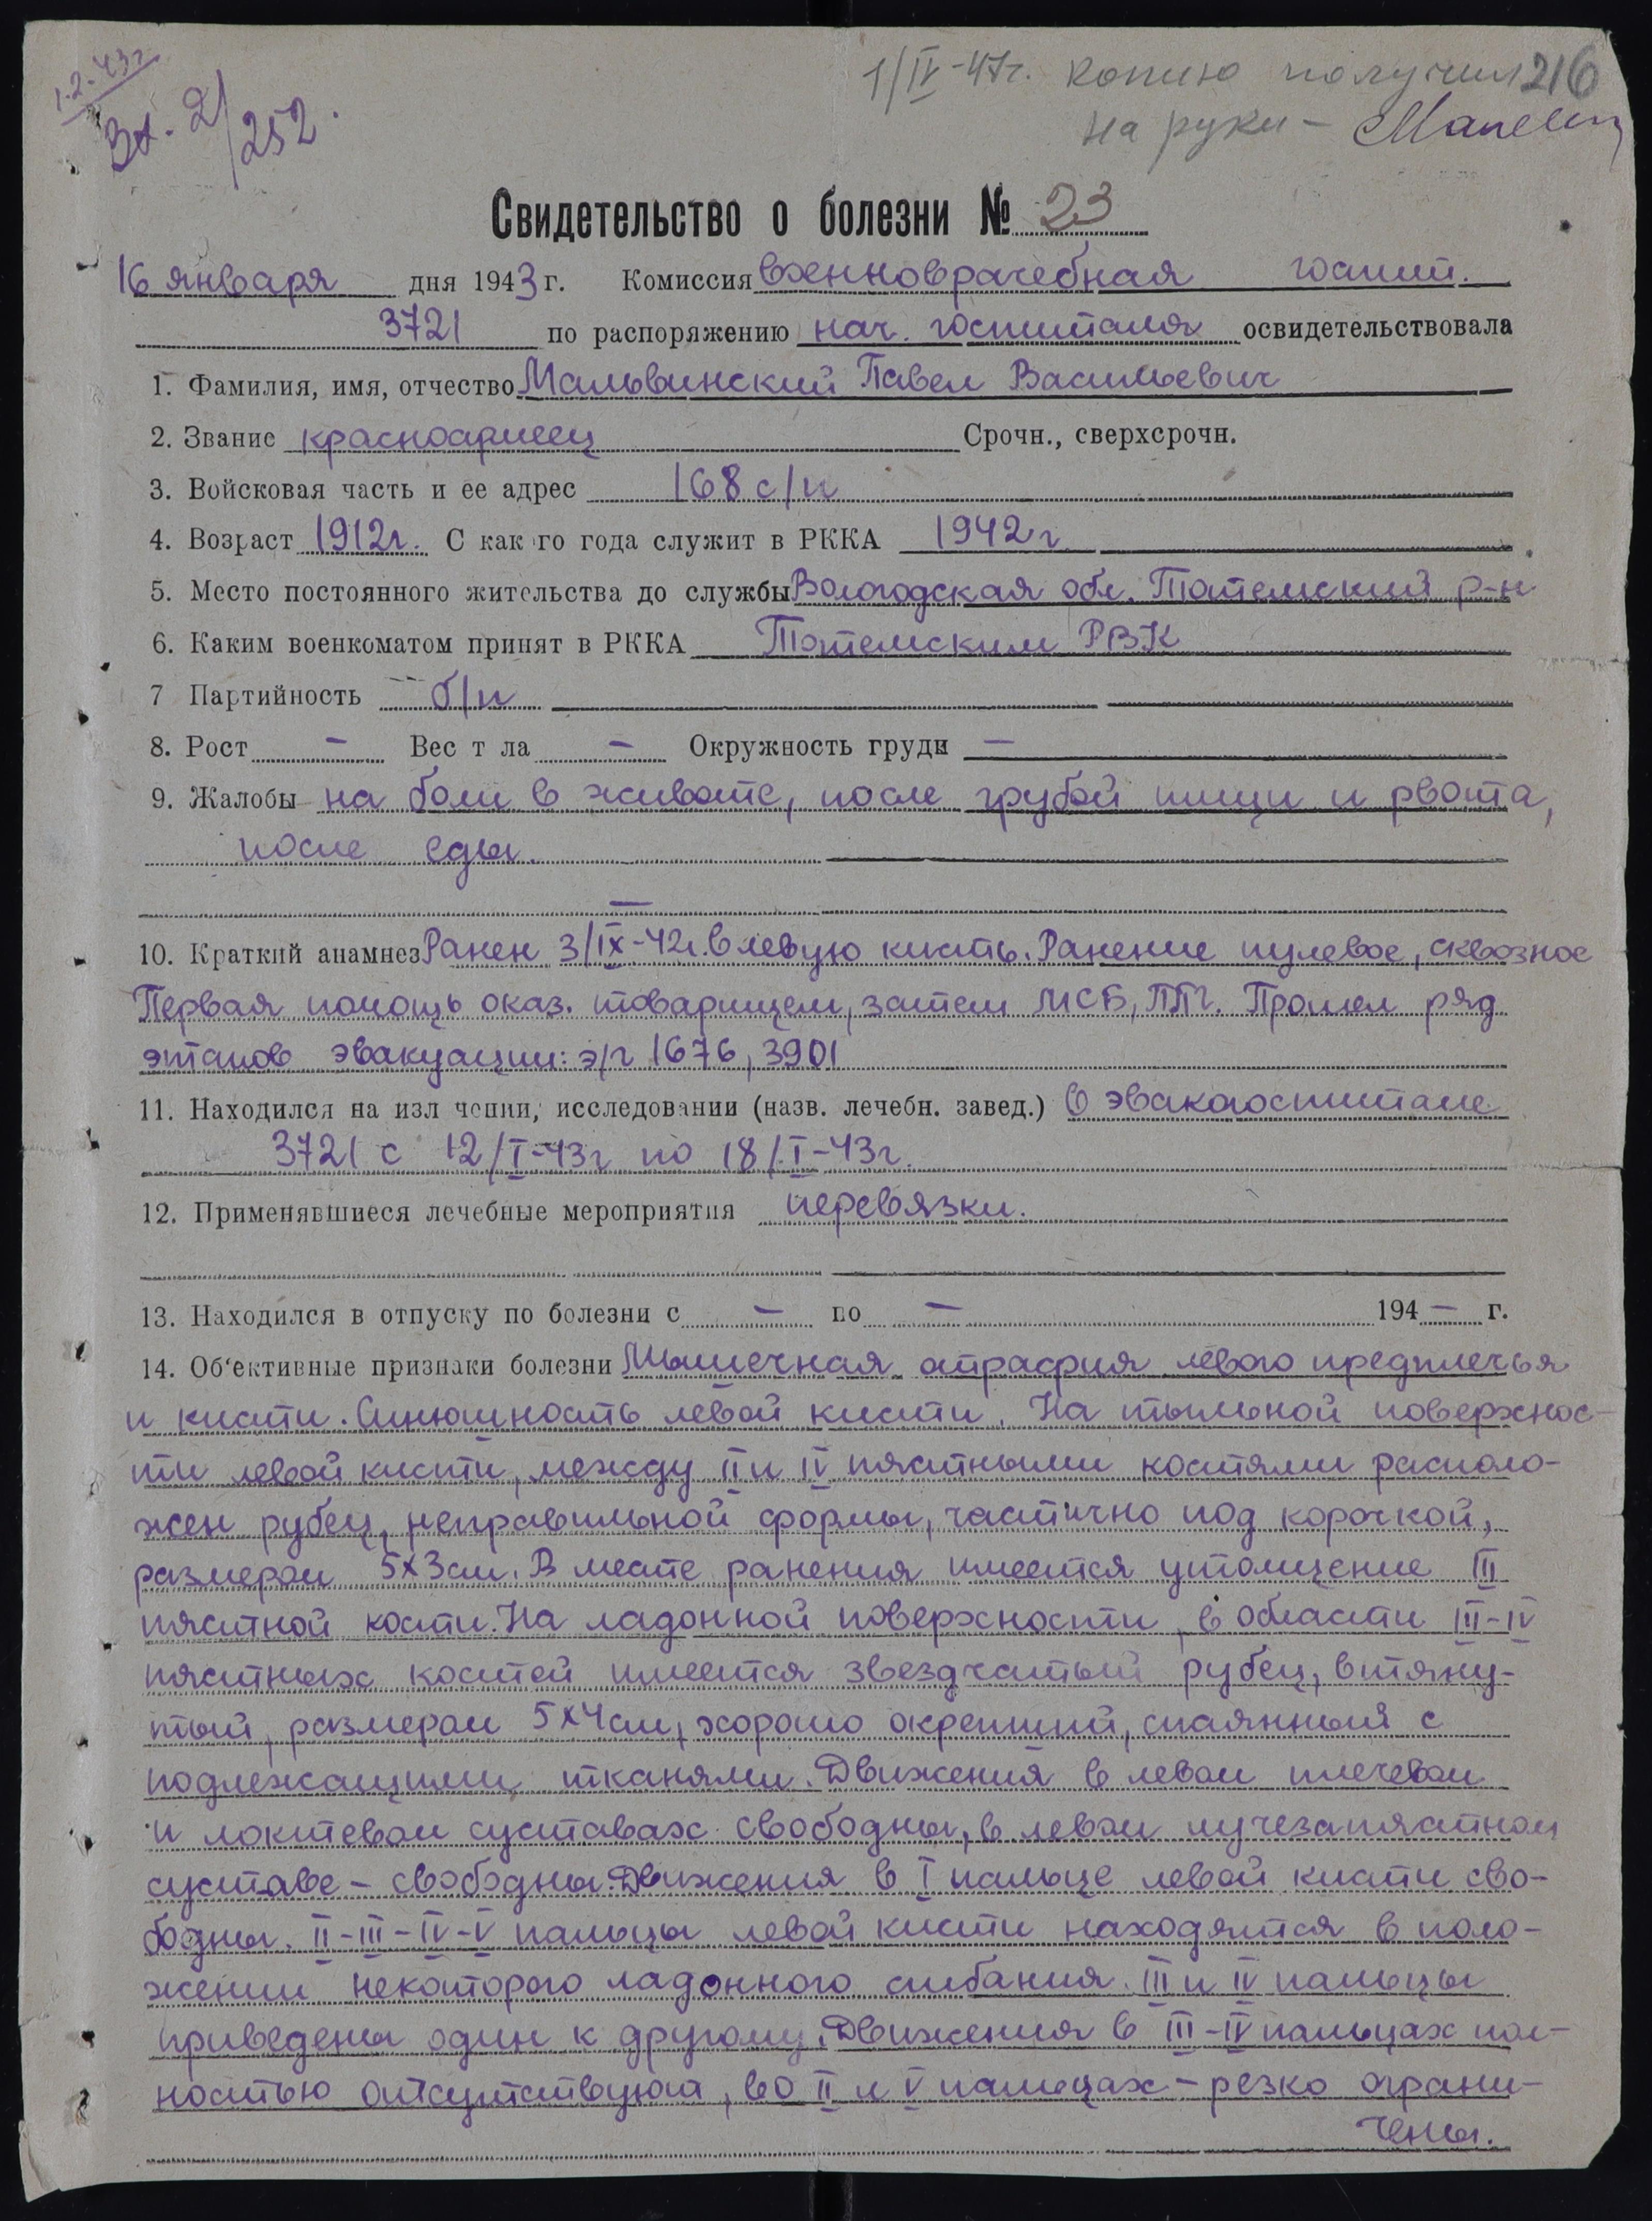 1.2.43г
Вх. 2/252.
1/IV-47г. копию получил 216
на руки –
Свидетельство о болезни № 23
16 января дня 1943 г. Комиссия военноврачебная госпит.
3721 по распоряжению нач. госпиталя освидетельствовала
1. Фамилия, имя, отчество Мальвинский Павел Васильевич
2. Звание красноармеец Срочн., сверхсрочн.
3. Войсковая часть и ее адрес 168 с/п
4. Возраст 1912г. С как го года служит в РККА 1942г.
5. Место постоянного жительства до службы Вологодская обл. Тотемский р-н
6. Каким военкоматом принят в РККА Тотемским РВК
7 Партийность б/п
8. Рост – Вес т ла – Окружность груди –
9. Жалобы на боли в животе, после грубой пищи и рвота,
после еды.
–
10. Краткий анамнез Ранен 3/IX-42г. в левую кисть. Ранение пулевое, сквозное
Первая помощь оказ. товарищем, затем МСБ, ППГ. Прошел ряд
этапов эвакуации: э/г 1676, 3901
11. Находился на изл чении, исследовании (назв. лечебн. завед.) в эвакогоспитале
3721 с 12/I-43г по 18/I-43г.
12. Применявшиеся лечебные мероприятия перевязки.
13. Находился в отпуску по болезни с – по – 194 – г.
14. Об'ективные признаки болезни Мышечная атрафия левого предплечья
и кисти. Синюшность левой кисти. На тыльной поверхнос-
ти левой кисти, между II и IV пястными костями располо-
жен рубец, неправильной формы, частично под корочкой,
размером 5х3см. В месте ранения имеется утолщение III
пястной кости. На ладонной поверхности, в области III-IV
пястных костей имеется звездчатый рубец, втяну-
тый, размером 5х4см, хорошо окрепший, спаянный с
подлежащими тканями. Движения в левом плечевом
и локтевом суставах свободны, в левом лучезапястном
суставе – свободны. Движения в I пальце левой кисти сво-
бодны. II-III-IV-V пальцы левой кисти находятся в поло-
жении некоторого ладонного сгибания. III и IV пальцы
приведены один к другому. Движения в III-IV пальцах пол-
ностью отсутствуют, во II и V пальцах – резко ограни-
чены.